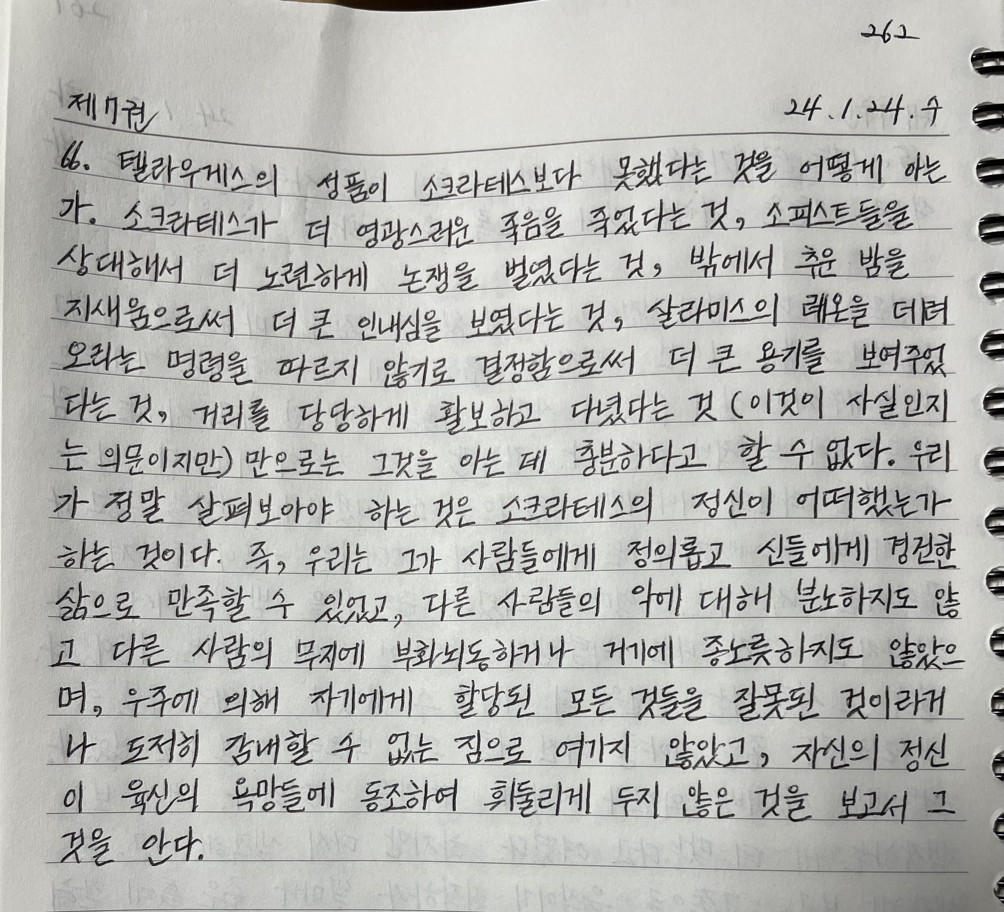 262
제7권 24.1.24.수
66. 텔라우게스의 성품이 소크라테스보다 못했다는 것을 어떻게 아는
가. 소크라테스가 더 영광스러운 죽음을 죽었다는 것, 소피스트들을
상대해서 더 노련하게 논쟁을 벌였다는 것, 밖에서 추운 밤을
지새움으로써 더 큰 인내심을 보였다는 것, 살라미스의 레온을 데려
오라는 명령을 따르지 않기로 결정함으로써 더 큰 용기를 보여주었
다는 것, 거리를 당당하게 활보하고 다녔다는 것 (이것이 사실인지
는 의문이지만) 만으로는 그것을 아는 데 충분하다고 할 수 없다. 우리
가 정말 살펴보아야 하는 것은 소크라테스의 정신이 어떠했는가
하는 것이다. 즉, 우리는 그가 사람들에게 정의롭고 신들에게 경건한
삶으로 만족할 수 있었고, 다른 사람들의 악에 대해 분노하지도 않
고 다른 사람의 무지에 부화뇌동하거나 거기에 종노릇하지도 않았으
며, 우주에 의해 자기에게 할당된 모든 것들을 잘못된 것이라거
나 도저히 감내할 수 없는 짐으로 여기지 않았고, 자신의 정신
이 육신의 욕망들에 동조하여 휘둘리게 두지 않은 것을 보고서 그
것을 안다.